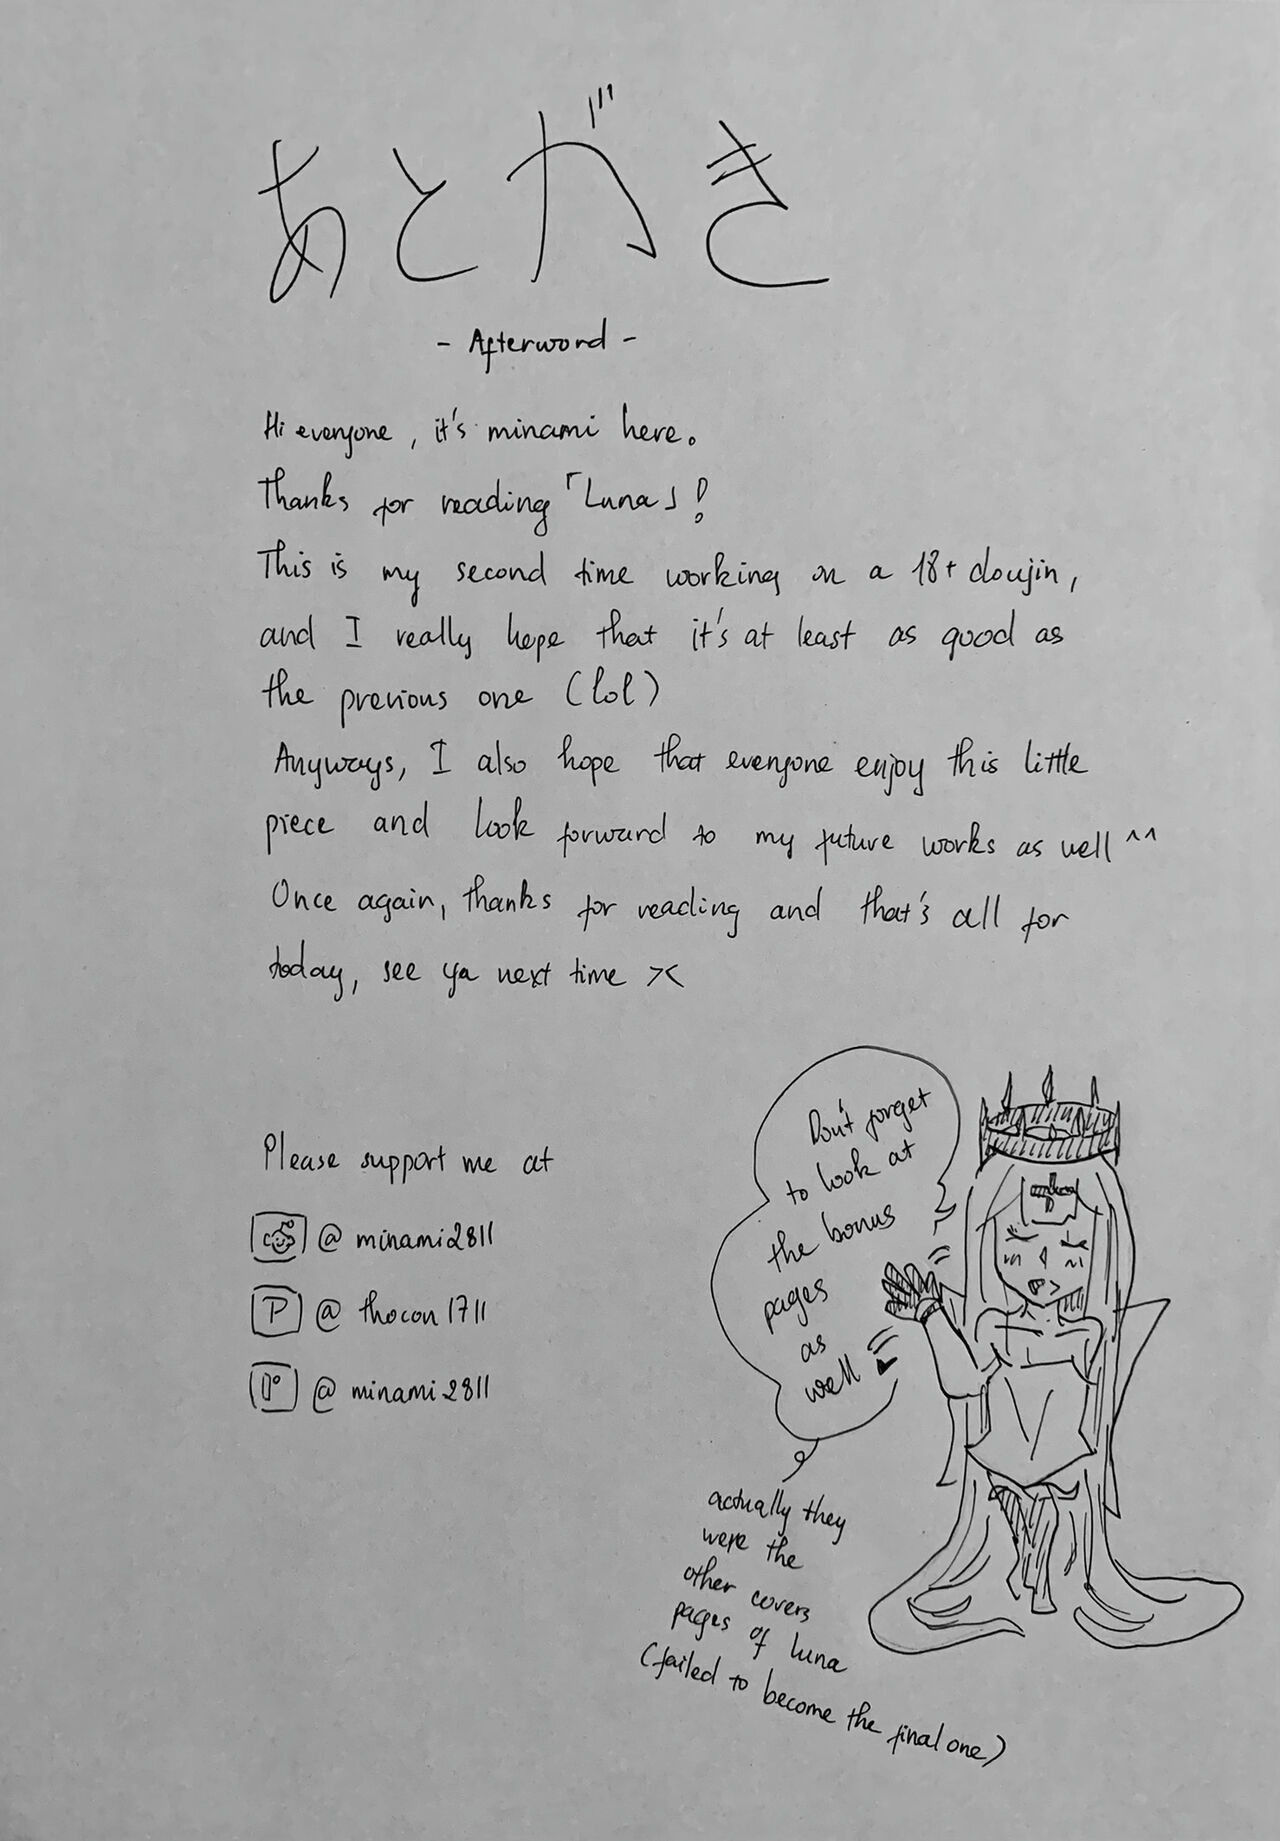 あとがき
- Afterword -
Hi everyone, it's minami here.
Thanks for reading 「Luna」!
This is my second time working on a 18+ doujin,
and I really hope that it's at least as good as
the previous one (lol)
Anyways, I also hope that everyone enjoy this little
piece and look forward to my future works as well ^^
Once again, thanks for reading and that's all for
today, see ya next time ><
Please support me at
@ minami2811
P @ thocon1711
@ minami2811
Don't forget
to look at
the bonus
pages
as
well
actually they
were the
other covers
pages of luna
(failed to become the final one)